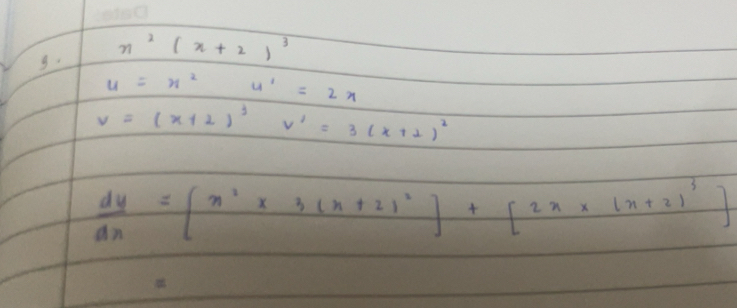 Date:
3. x² (x+2)³
u = x² u' = 2x
v = (x+2)³ v' = 3(x+2)²
dy/dx = [x² × 3(x+2)²] + [2x × (x+2)³]
=